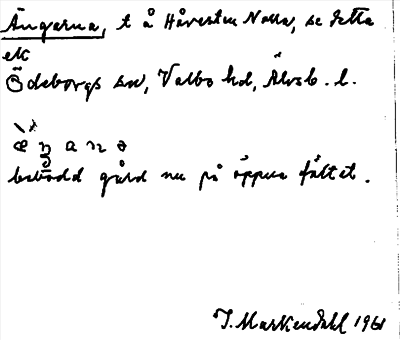 Ängarna, t å Håvesten Norra, se detta
ek
Ödeborgs sn, Valbo hd, Älvsb. l.
bebodd gård nu på öppna fältet.
J. Markendahl 1961